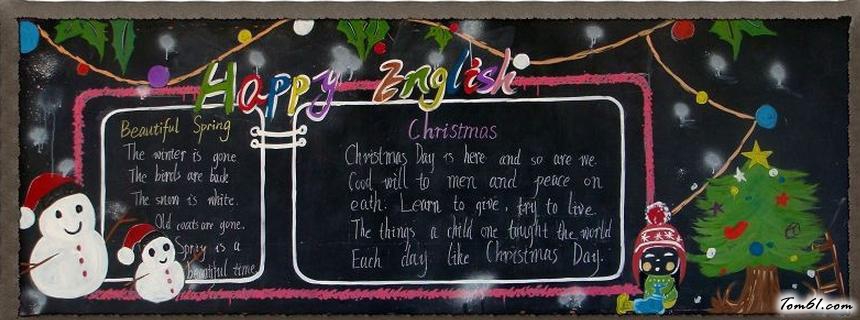 Happy English
Beautiful Spring
The winter is gone
The birds are back
The snow is white.
Old coats are gone.
Spriy is a
beautiful time
Christmas
Christmas Day is here and so are we.
Good will to men and peace on
eath. Learn to give, try to live.
The things a child one taught the world
Each day like Christmas Day.
Tom61.com